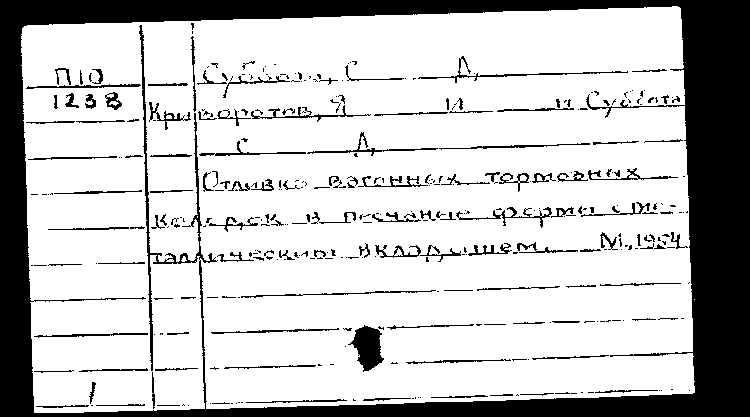 П10 Суббота, С Д,
1238 Криворотов, Я И и Суббота
С Д,
Отливка вагонных тормозных
колодок в песчаные формы с ме-
таллическим вкладышем. М., 1954
1